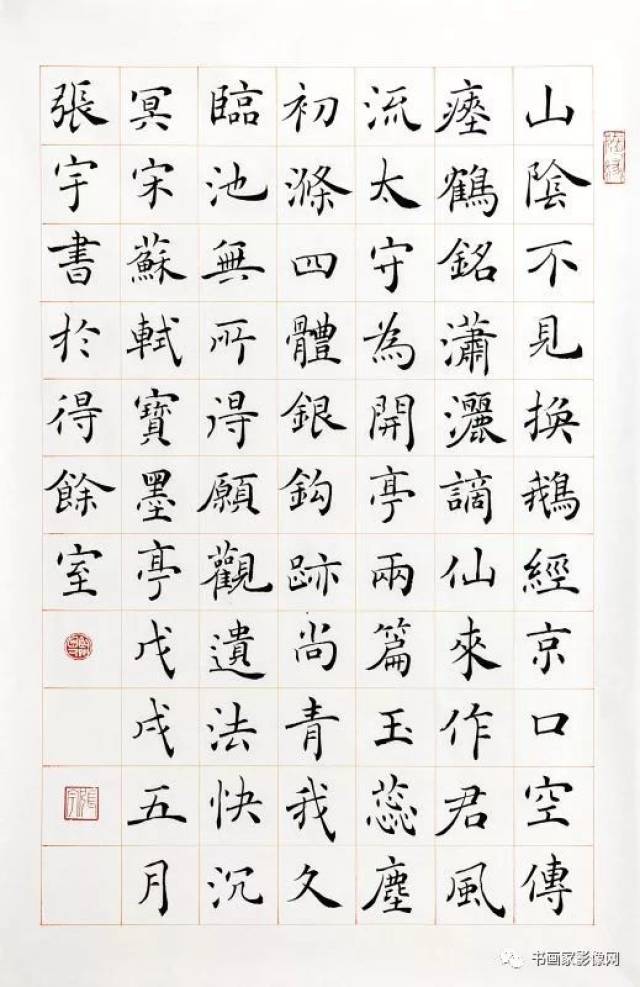 山陰不見換鵝經京口空傳
瘞鶴銘瀟灑謫仙來作君風
流太守為開亭兩篇玉蕊塵
初滌四體銀鈎跡尚青我久
臨池無所得願觀遺法快沉
冥宋蘇軾寶墨亭戊戌五月
張宇書於得餘室
书画家影像网